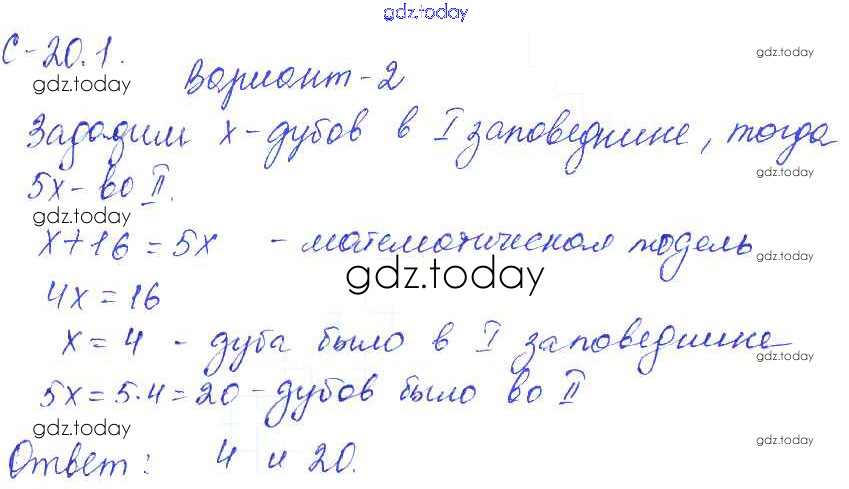 gdz.today
С-20.1.
gdz.today
Вариант-2
gdz.today
Зададим х-дубов в I заповеднике, тогда
5х- во II.
gdz.today
gdz.today
х+16=5х - математическая модель
gdz.today
gdz.today
4х=16
х=4 - дуба было в I заповеднике
gdz.today
5х=5·4=20-дубов было во II
gdz.today
gdz.today
Ответ: 4 и 20.